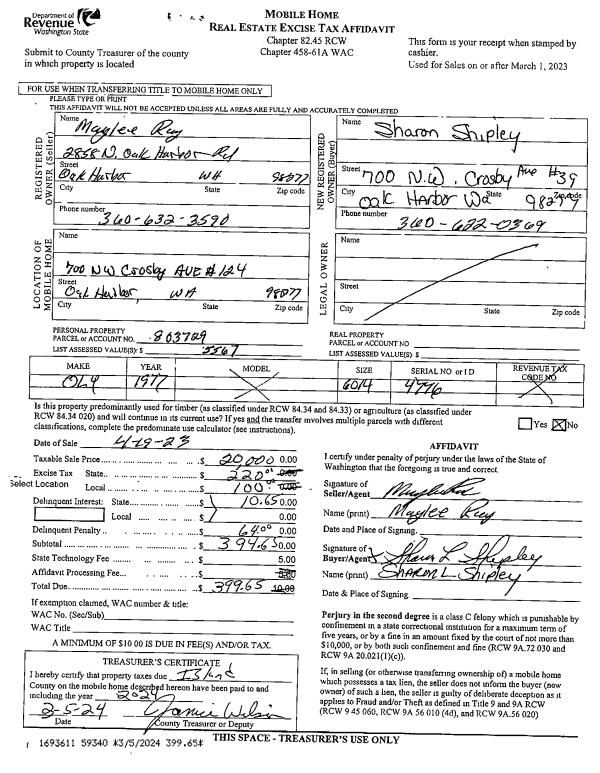 Department of
Revenue
Washington State
MOBILE HOME
REAL ESTATE EXCISE TAX AFFIDAVIT
Chapter 82.45 RCW
Chapter 458-61A WAC
Submit to County Treasurer of the county
in which property is located
This form is your receipt when stamped by
cashier.
Used for Sales on or after March 1, 2023
FOR USE WHEN TRANSFERRING TITLE TO MOBILE HOME ONLY
PLEASE TYPE OR PRINT
THIS AFFIDAVIT WILL NOT BE ACCEPTED UNLESS ALL AREAS ARE FULLY AND ACCURATELY COMPLETED
REGISTERED
OWNER (Seller)
Name
Maylee Ruy
2858 N. Oak Harbor Rd
Street
Oak Harbor WA 98277
City State Zip code
Phone number
360-632-3590
NEW REGISTERED
OWNER (Buyer)
Name
Sharon Shipley
Street 700 N.W. Crosby Ave #39
City Oak Harbor Wa State 98277 Zip code
Phone number
360-632-0369
LOCATION OF
MOBILE HOME
Name
700 NW Crosby AVE # 124
Street
Oak Harbor, WA 98277
City State Zip code
LEGAL OWNER
Name
Street
City State Zip code
PERSONAL PROPERTY
PARCEL or ACCOUNT NO. 803769
LIST ASSESSED VALUE(S): $ 5567
REAL PROPERTY
PARCEL or ACCOUNT NO
LIST ASSESSED VALUE(S): $
MAKE YEAR MODEL SIZE SERIAL NO or I D REVENUE TAX
CODE NO
OLY 1977 60/4 4776
Is this property predominantly used for timber (as classified under RCW 84.34 and 84.33) or agriculture (as classified under
RCW 84.34 020) and will continue in its current use? If yes and the transfer involves multiple parcels with different
classifications, complete the predominate use calculator (see instructions).
Yes No
Date of Sale 4-19-23
Taxable Sale Price $ 20,000 0.00
Excise Tax State $ 220.00 0.00
Select Location Local $ 100.00 0.00
Delinquent Interest: State $ 10.65 0.00
Local $ 0.00
Delinquent Penalty $ 64.00 0.00
Subtotal $ 394.65 0.00
State Technology Fee $ 5.00
Affidavit Processing Fee $ 5.00
Total Due $ 399.65 10.00
If exemption claimed, WAC number & title:
WAC No. (Sec/Sub)
WAC Title
A MINIMUM OF $10 00 IS DUE IN FEE(S) AND/OR TAX.
AFFIDAVIT
I certify under penalty of perjury under the laws of the State of
Washington that the foregoing is true and correct.
Signature of
Seller/Agent
Name (print) Maylee Ruy
Date and Place of Signing.
Signature of
Buyer/Agent Sharon L Shipley
Name (print) SHARON L. Shipley
Date & Place of Signing
Perjury in the second degree is a class C felony which is punishable by
confinement in a state correctional institution for a maximum term of
five years, or by a fine in an amount fixed by the court of not more than
$10,000, or by both such confinement and fine (RCW 9A.72 030 and
RCW 9A 20.021(1)(c)).
If, in selling (or otherwise transferring ownership of) a mobile home
which possesses a tax lien, the seller does not inform the buyer (new
owner) of such a lien, the seller is guilty of deliberate deception as it
applies to Fraud and/or Theft as defined in Title 9 and 9A RCW
(RCW 9 45 060, RCW 9A 56 010 (4d), and RCW 9A.56 020)
TREASURER'S CERTIFICATE
I hereby certify that property taxes due Island
County on the mobile home described hereon have been paid to and
including the year 2024
3-5-24 Janice Wilson
Date County Treasurer or Deputy
THIS SPACE - TREASURER'S USE ONLY
1693611 59340 *3/5/2024 399.65*